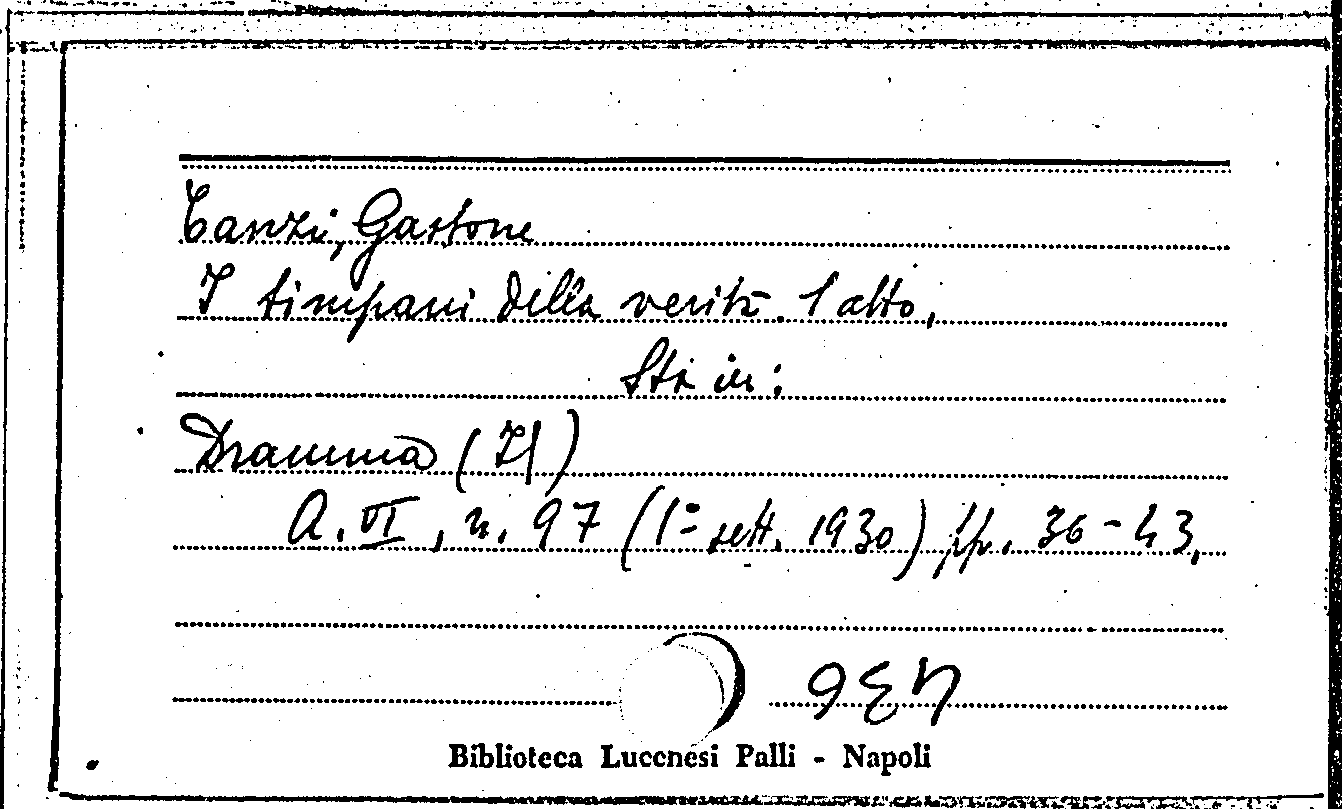 Tanzi, Gastone
I timpani della verità. 1 atto,
Sta in:
Dramma (Il)
A. VI, n. 97 (1º sett. 1930) pp. 36-43.
Biblioteca Lucchesi Palli - Napoli